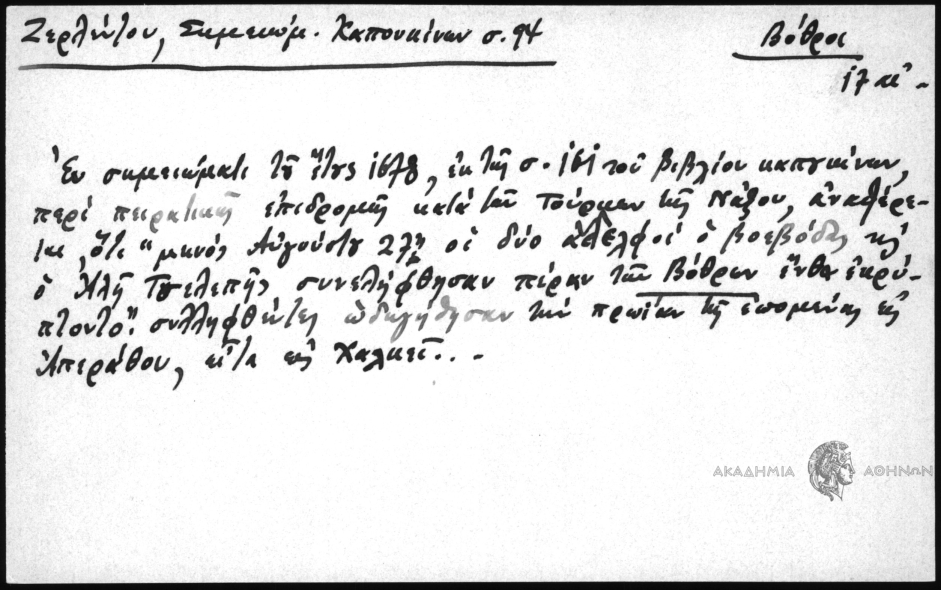 Ζερλέντου, Σημειώμ. Καπουκίνων σ. 94
Βόθροι
17 αἰ.
Ἐν σημειώματι τοῦ ἔτους 1678, ἐκ τῆς σ. 161 τοῦ βιβλίου καπουκίνων,
περί πειρατικῆς ἐπιδρομῆς κατά τῶν Τούρκων τῆς Νάξου, ἀναφέρε-
ται, ὅτι "μηνός Αὐγούστου 27ῃ οἱ δύο ἀδελφοί ὁ βοεβόδας κὶ
ὁ Ἀλῆ Τσελεπῆς συνελήφθησαν πέραν τῶν Βόθρων ἔνθα ἐκρύ-
πτοντο". συλληφθέντες ὡδηγήθησαν τήν πρωίαν τῆς ἑπομένης εἰς
Ἀπεράθου, εἶτα εἰς Χαλκεῖ...-
ΑΚΑΔΗΜΙΑ ΑΘΗΝΩΝ